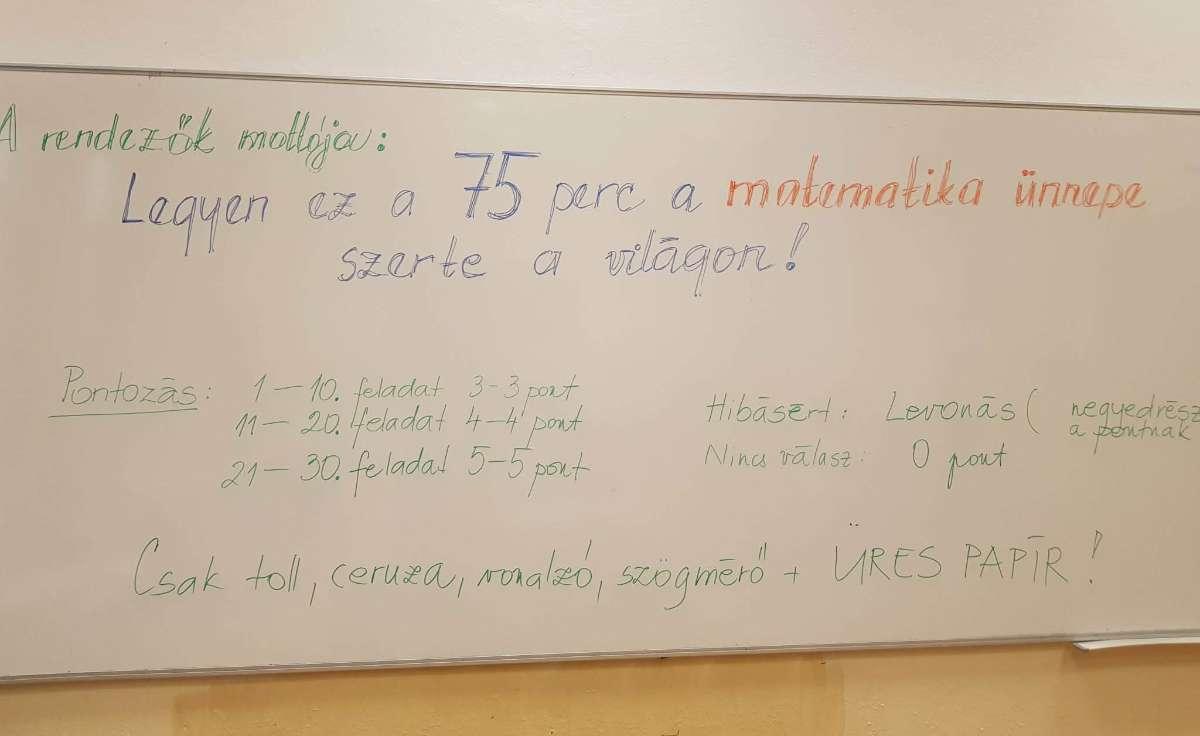 A rendezők mottója:
Legyen ez a 75 perc a matematika ünnepe
szerte a világon!
Pontozás: 1-10. feladat 3-3 pont
11-20. feladat 4-4 pont
21-30. feladat 5-5 pont
Hibásért: Levonás ( negyedrész
a pontnak
Nincs válasz: 0 pont
Csak toll, ceruza, vonalzó, szögmérő + ÜRES PAPÍR!